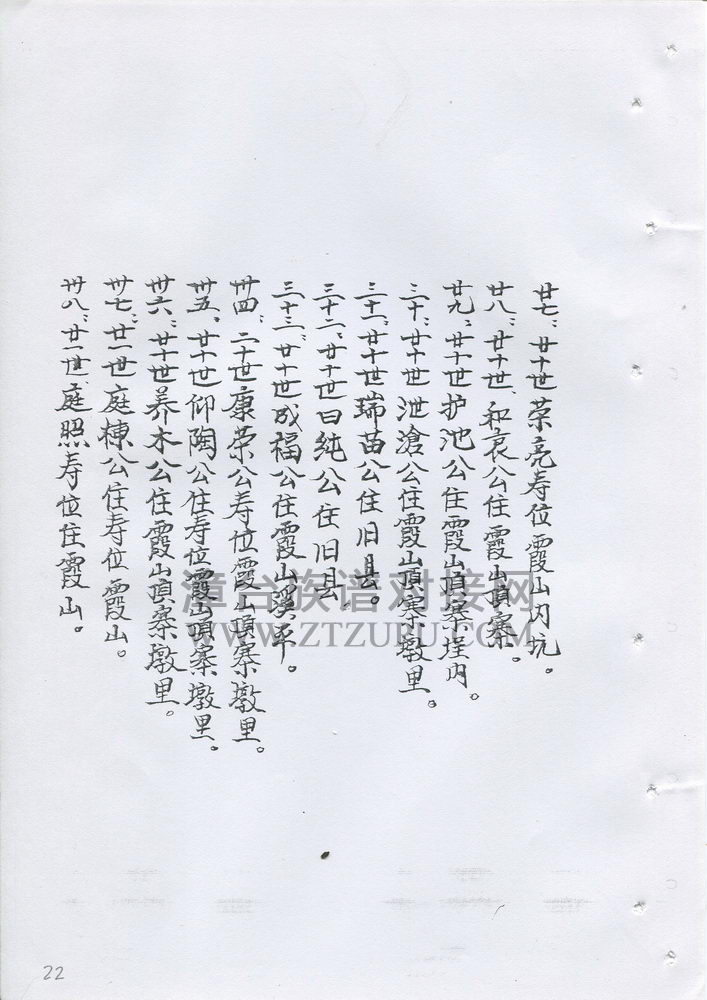 廿七：廿十世荣亮寿位霞山内坑。
廿八：廿十世、和衷公住霞山頂寨。
廿九：廿十世护池公住霞山頂寨埕内。
三十：廿十世泄滄公住霞山頂寨墩里。
三十一：廿十世瑞苗公住旧县。
三十二、廿十世曰純公住旧县
三十三：廿十世成福公住霞山溪平。
卅四：二十世康荣公寿位霞山頂寨墩里。
卅五、廿十世仰陶公住寿位霞山頂寨墩里。
卅六：廿十世养木公住霞山頂寨墩里。
卅七：廿一世庭棟公住寿位霞山。
卅八：廿一世、庭照寿位住霞山。
漳台族谱对接网
WWW.ZTZUPU.COM
22